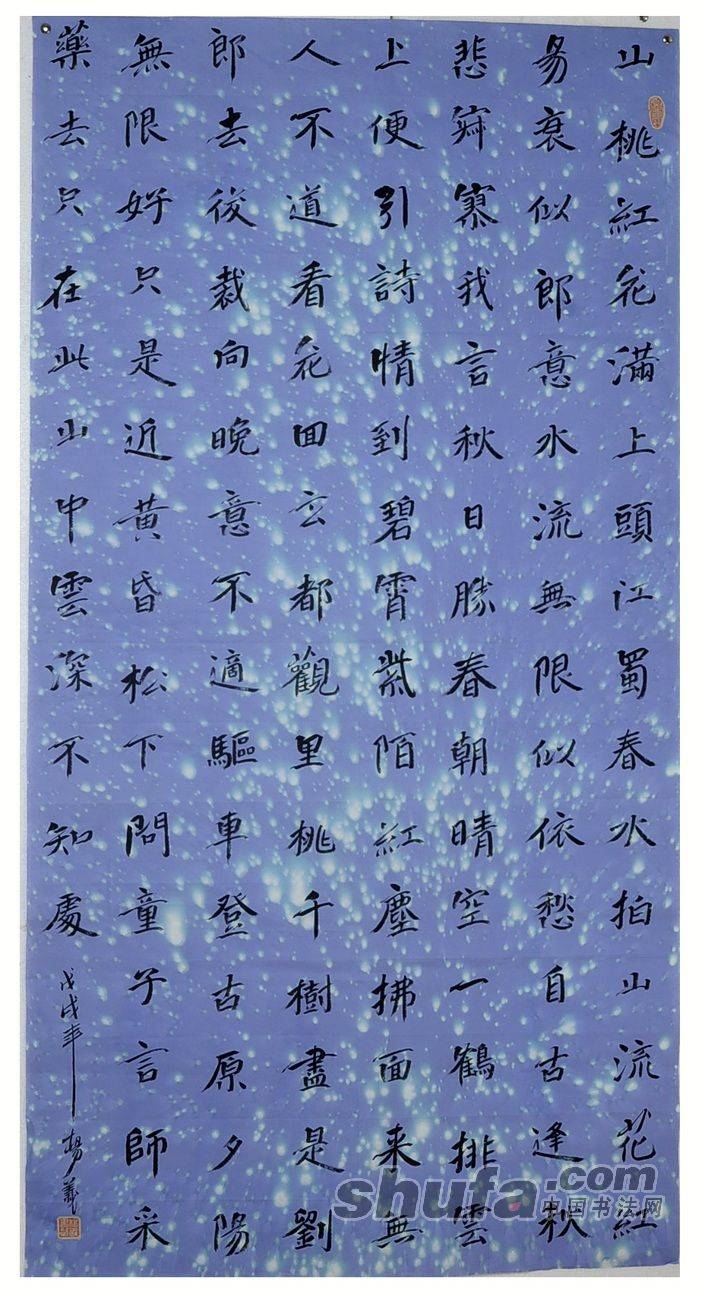 山桃紅花滿上頭江蜀春水拍山流花紅
易衰似郎意水流無限似依愁自古逢秋
悲寂寥我言秋日勝春朝晴空一鶴排雲
上便引詩情到碧霄紫陌紅塵拂面来無
人不道看花回玄都觀里桃千樹盡是劉
郎去後栽向晚意不適驅車登古原夕陽
無限好只是近黃昏松下問童子言師采
藥去只在此山中雲深不知處
戊戌年 楊義
shufa.com
中国书法网